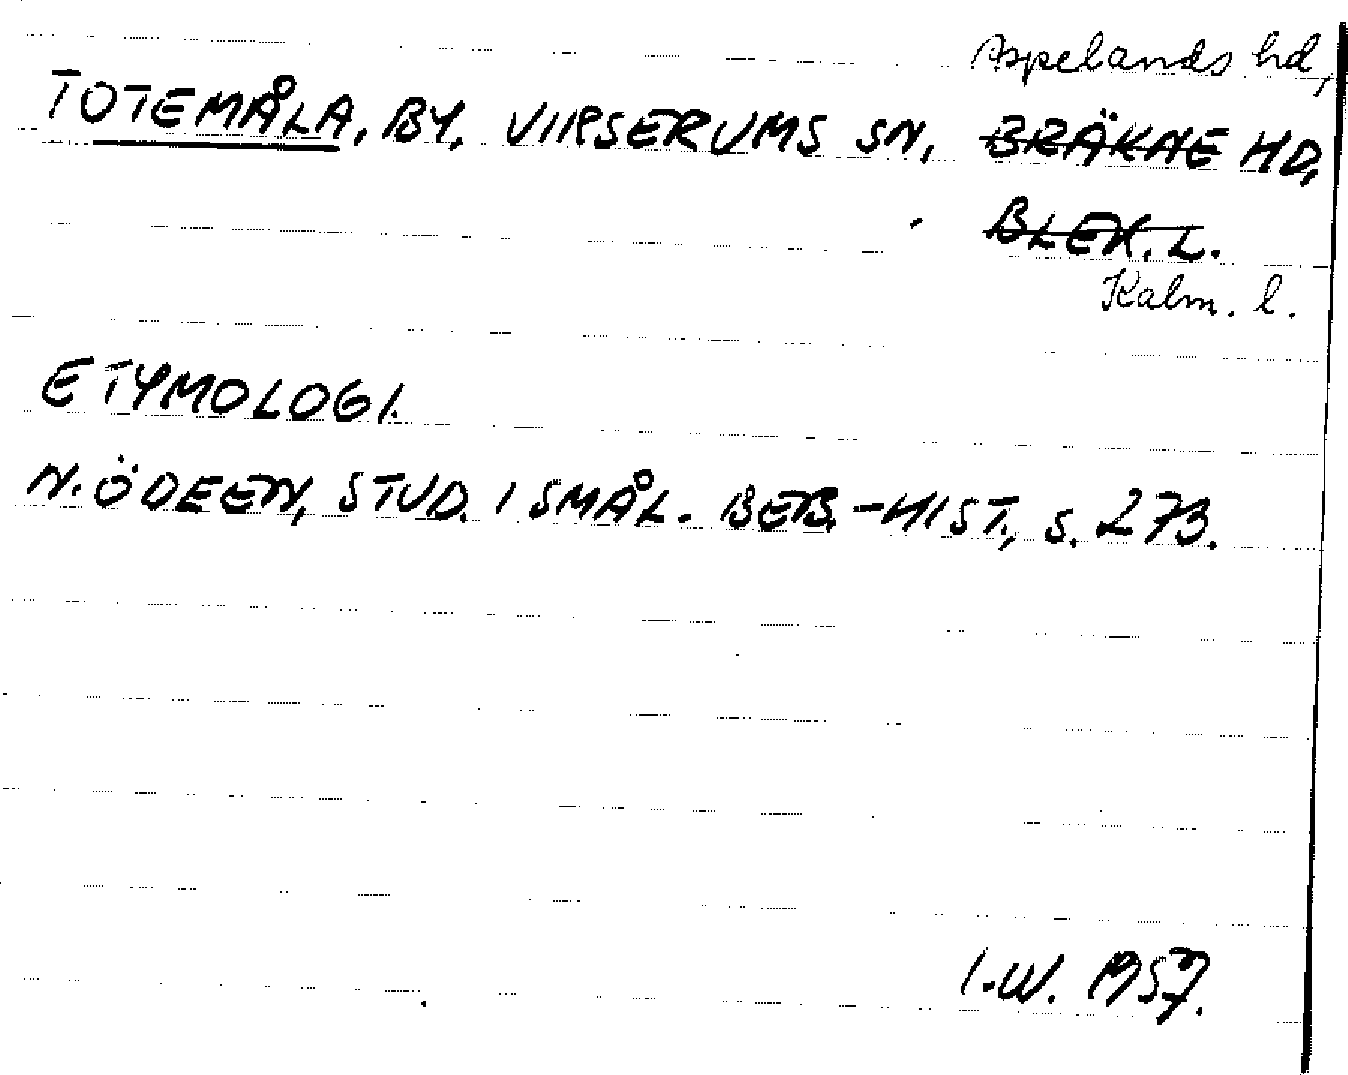 Aspelands hd,
TOTEMÅLA, BY. VIRSERUMS SN, BRÄKNE HD,
BLEK. L.
Kalm. l.
ETYMOLOGI.
N. ÖDEEN, STUD. I SMÅL. BEB.-HIST., S. 273.
I.W. 1957.